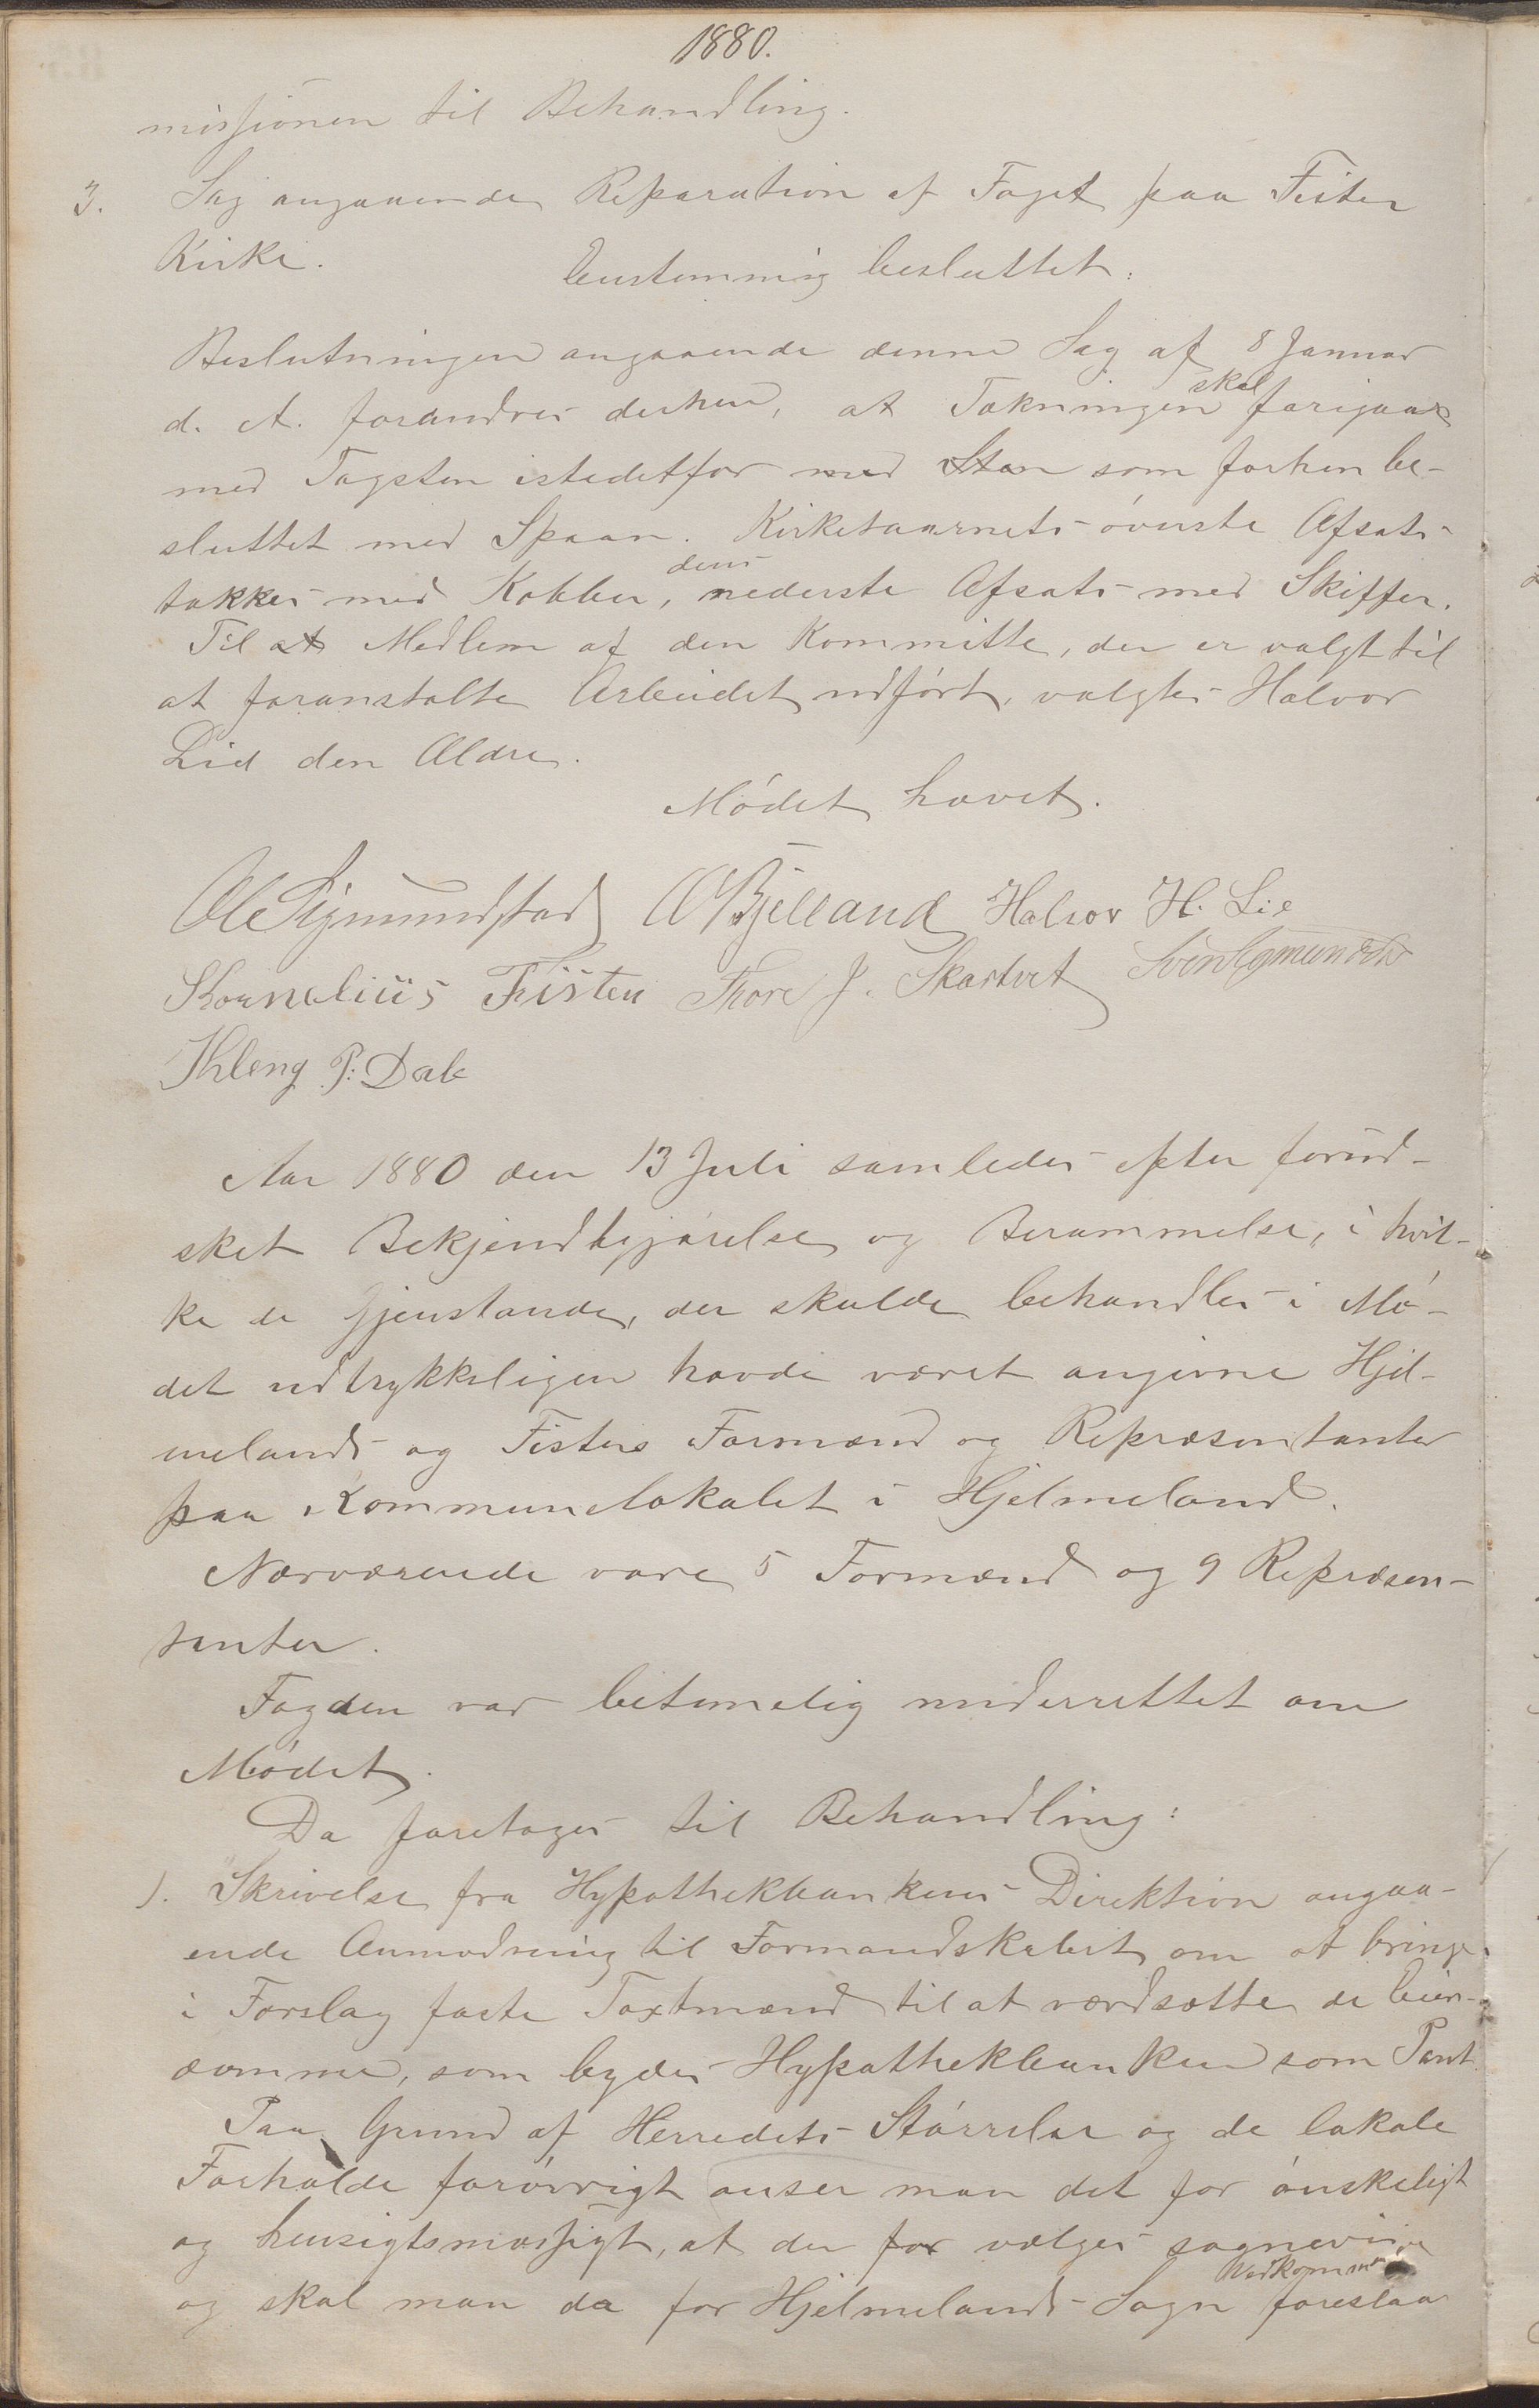 1880.
missionen til Behandling.
3. Sag angaaende Reparation af Taget paa Fister
Kirke.
Eenstemmig besluttet:
Beslutningen angaaende denne Sag af 8 Januar
d. A. forandres derhen, at Tækningen skal foregaa
med Tagsten istedetfor med Sten som forhen be-
sluttet med Spaan. Kirketaarnets øverste Afsats
tækkes med Kobber, dens nederste Afsats med Skiffer.
Til at Medlem af den Kommitte, der er valgt til
at foranstalte Arbeidet udført, valgtes Halvor
Lid den Ældre.
Mødet hævet.
Ole Sigmundstad O Bjelland Halvor H. Lie
Kornelius Fisten Thore J. Skartvet Sven Sigmundstad
Thleng P. Dale
Aar 1880 den 13 Juli samledes efter forud-
sket Bekjendtgjørelse og Berammelse, i hvil-
ke de Gjenstande, der skulde behandles i Mø-
det udtrykkeligen havde været angivne Hjel-
melands og Fisters Formænd og Repræsentanter
paa Kommunelokalet i Hjelmeland.
Nærværende vare 5 Formænd og 9 Repræsen-
tanter.
Fogden var betimelig underrettet om
Mødet.
Da foretoges til Behandling:
1. Skrivelse fra Hypothekbankens Direktion angaa-
ende Anmodning til Formandskabet om at bringe
i Forslag faste Taxtmænd til at værdsætte de Eien-
domme, som bydes Hypothekbanken som Pant.
Paa Grund af Herredets Størrelse og de lokale
Forholde forøvrigt anser man det for ønskeligt
og hensigtsmæssigt, at der for vælges sognevise
og skal man da for Hjelmelands Sogn Vedkommende foreslaa